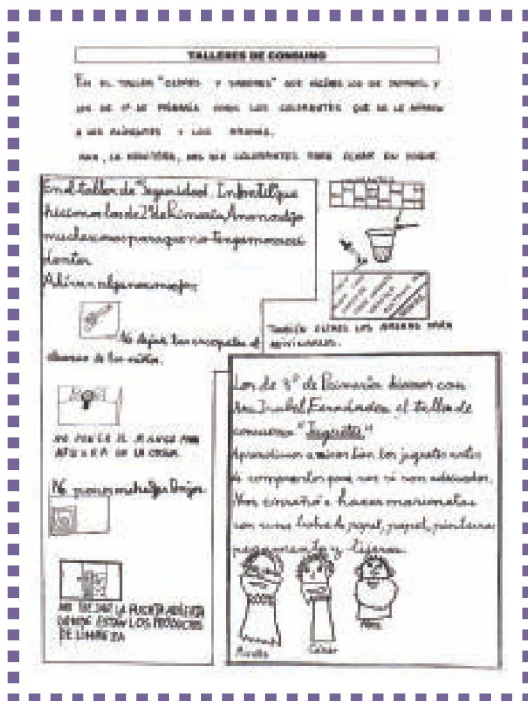 TALLERES DE CONSUMO
EN EL TALLER "OLORES Y SABORES" QUE HICIMOS LOS DE INFANTIL Y
LOS DE 1º DE PRIMARIA VIMOS LOS COLORANTES QUE SE LE AÑADEN
A LOS ALIMENTOS Y LOS AROMAS.
ANA, LA MONITORA, NOS DIO COLORANTES PARA ECHAR EN YOGUR.
En el taller de Seguridad Infantil que
hicimos los de 2º de Primaria, Ana nos dijo
muchas cosas para que no tengamos acci
dentes.
Ahí van algunos consejos:
No dejar las al
alcance de los niños.
TAMBIÉN OLIMOS LOS AROMAS PARA
ADIVINARLOS.
NO PONER EL MANGO POR
AFUERA DE LA COCINA.
No poner
NO DEJAR LA PUERTA ABIERTA
DONDE ESTAN LOS PRODUCTOS
DE LIMPIEZA
Los de 3º de Primaria hicimos con
Ana Isabel Fernández el taller de
consumo "Juguetes"
Aprendimos a mirar bien los juguetes antes
de comprarlos para ver si son adecuados.
Nos enseñó a hacer marionetas
con una bolsa de papel, papel, pinturas
pegamento y tijeras.
César